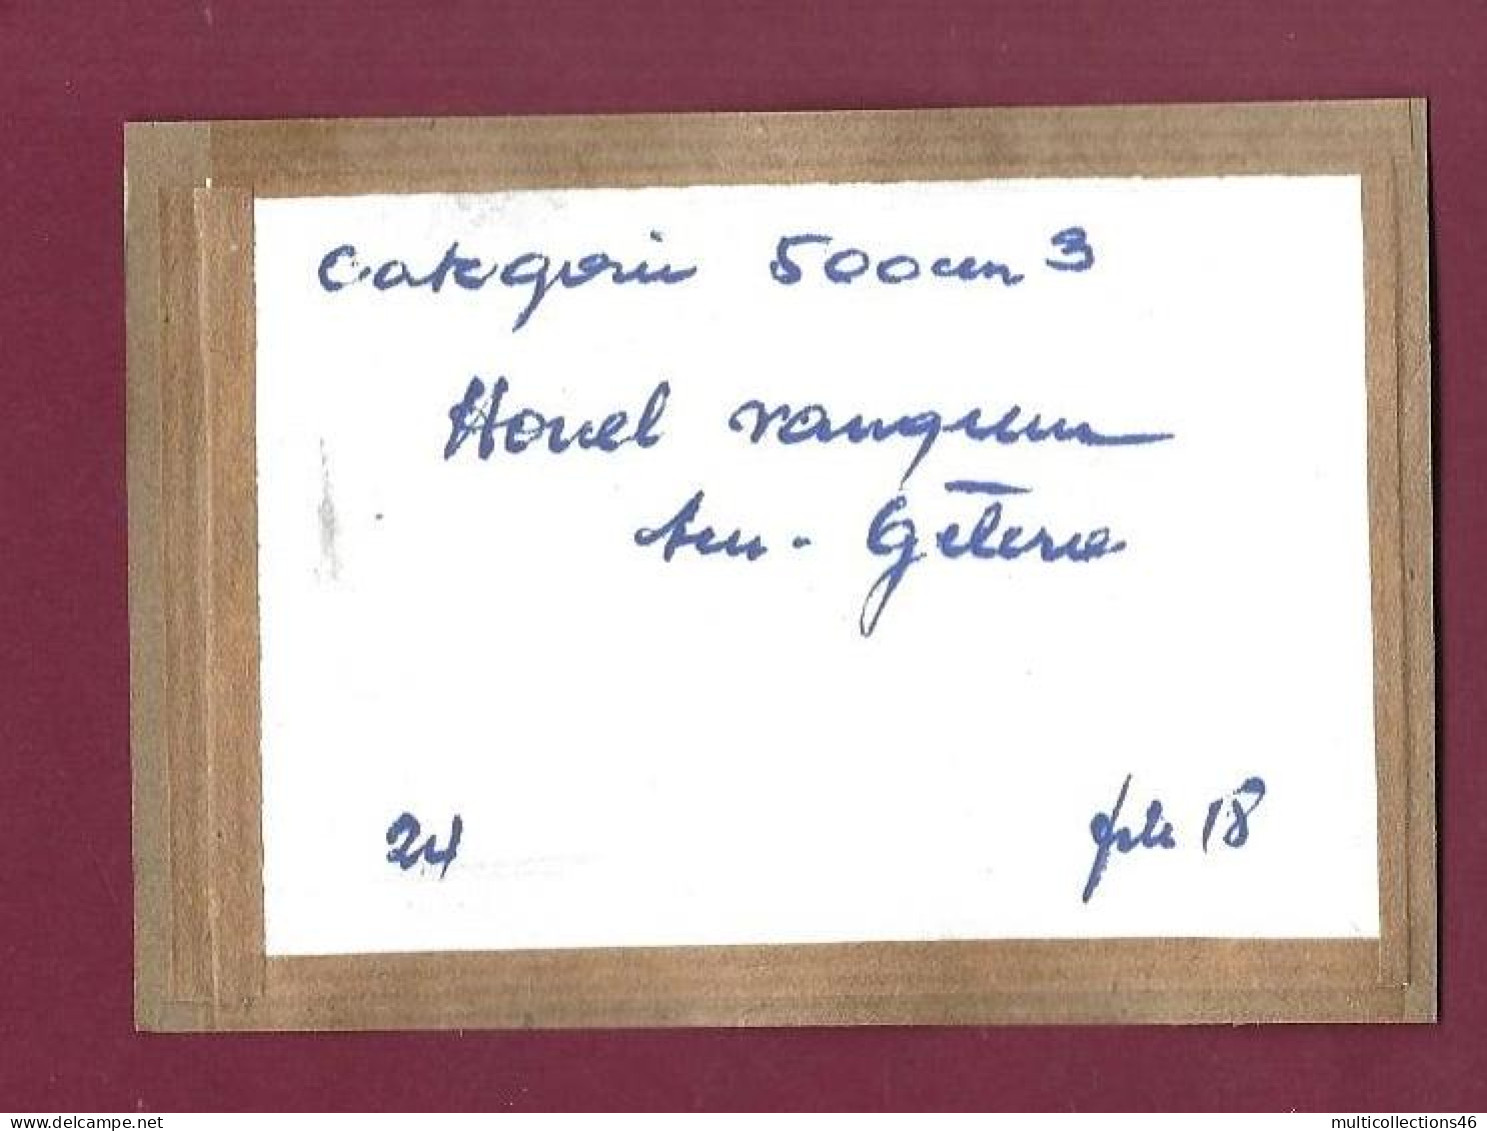 Categorie 500cm3
Houel vainqueur
sur Gilera
24
18
delcampe.net
multicollections46